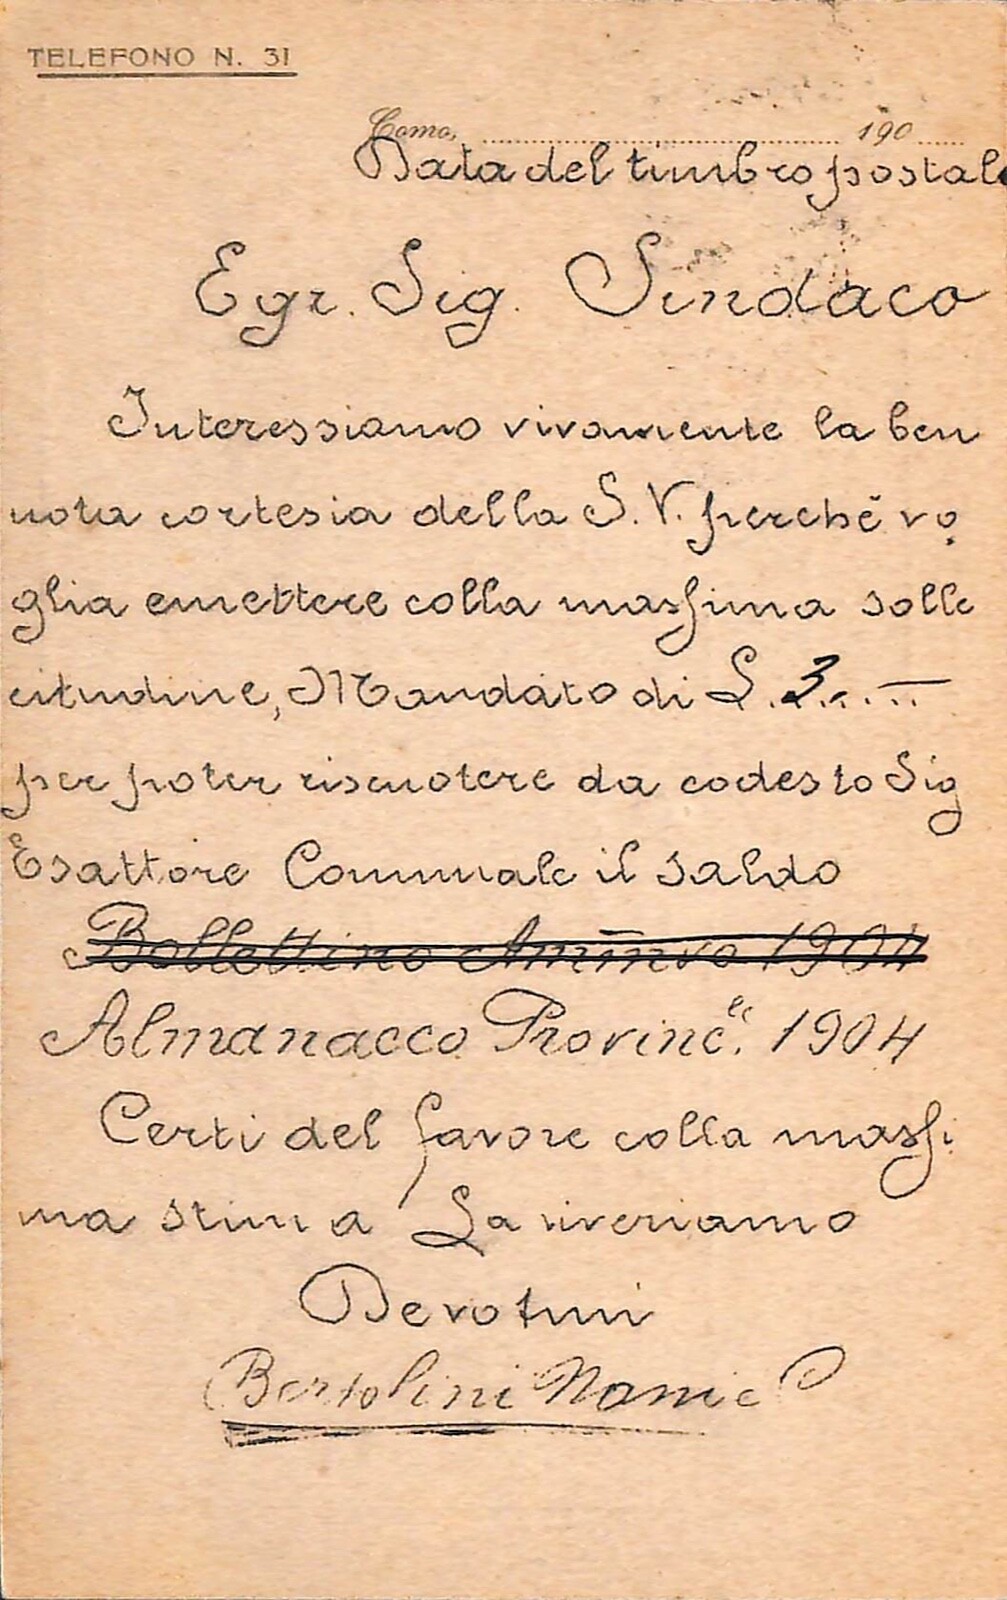 TELEFONO N. 31
Como, 190
Data del timbro postale
Egr. Sig. Sindaco
Interessiamo vivamente la ben
nota cortesia della S. V. perchè vo
glia emettere colla massima solle
citudine, Mandato di L. 3.
per poter riscuotere da codesto Sig
Esattore Comunale il saldo
Bollettino Amm̅vo 1904
Almanacco Provinc.le 1904
Certi del favore colla massi
ma stima La riveriamo
Devotmi
Bertolini Nani e C